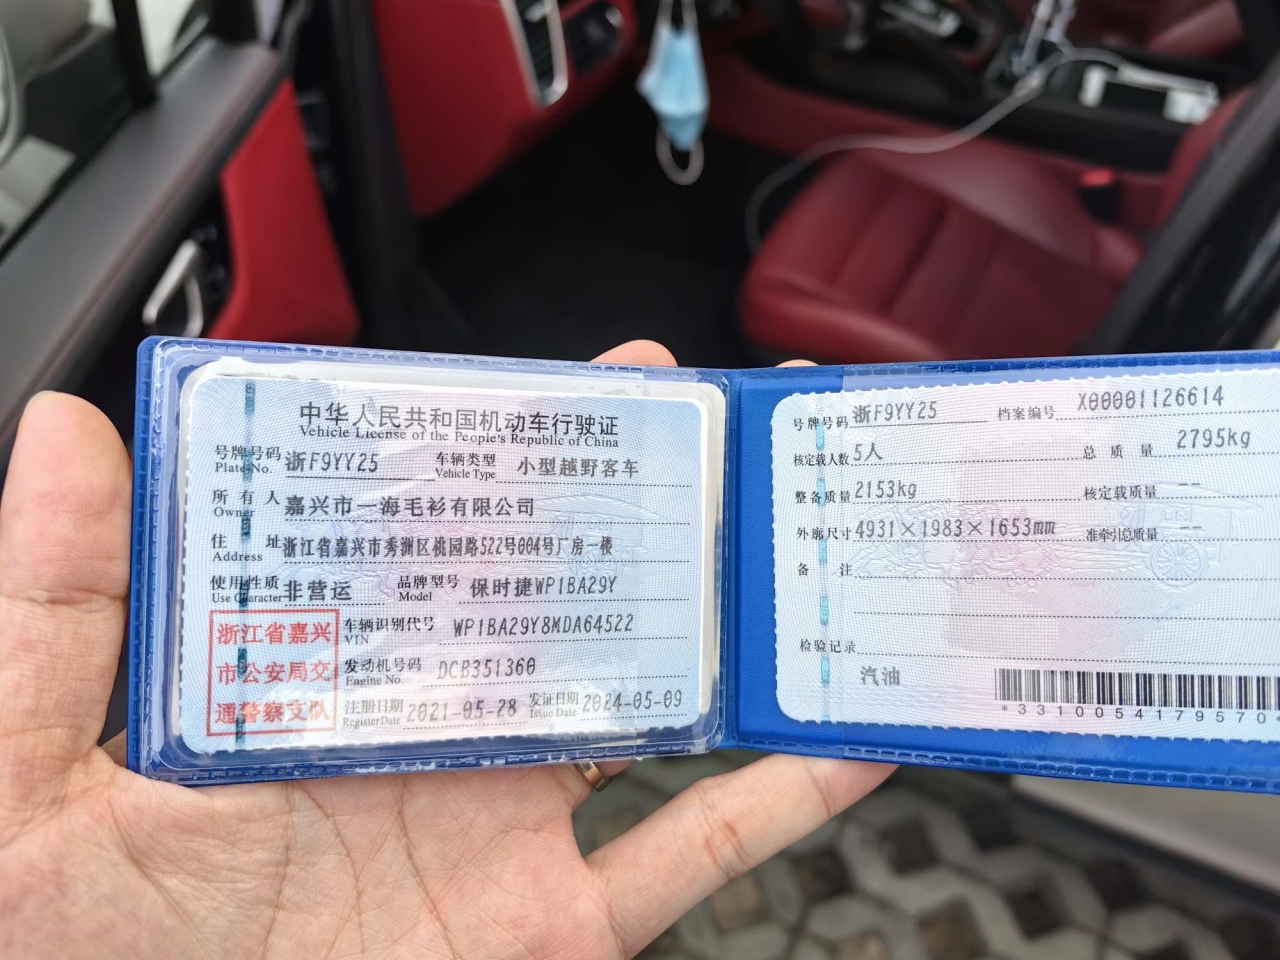 中华人民共和国机动车行驶证
Vehicle License of the People's Republic of China
号牌号码 浙F9YY25 车辆类型 小型越野客车
Plate No. Vehicle Type
所有人 嘉兴市一海毛衫有限公司
Owner
住址 浙江省嘉兴市秀洲区桃园路522号004号厂房一楼
Address
使用性质 非营运 品牌型号 保时捷WP1BA29Y
Use Character Model
浙江省嘉兴
市公安局交
通警察支队
车辆识别代号 WP1BA29Y8MDA64522
VIN
发动机号码 DCB351360
Engine No.
注册日期 2021-05-28 发证日期 2024-05-09
Register Date Issue Date
号牌号码 浙F9YY25 档案编号 X00001126614
核定载人数 5人 总质量 2795kg
整备质量 2153kg 核定载质量 --
外廓尺寸 4931×1983×1653mm 准牵引总质量 --
备注
检验记录
汽油
*3310054179570